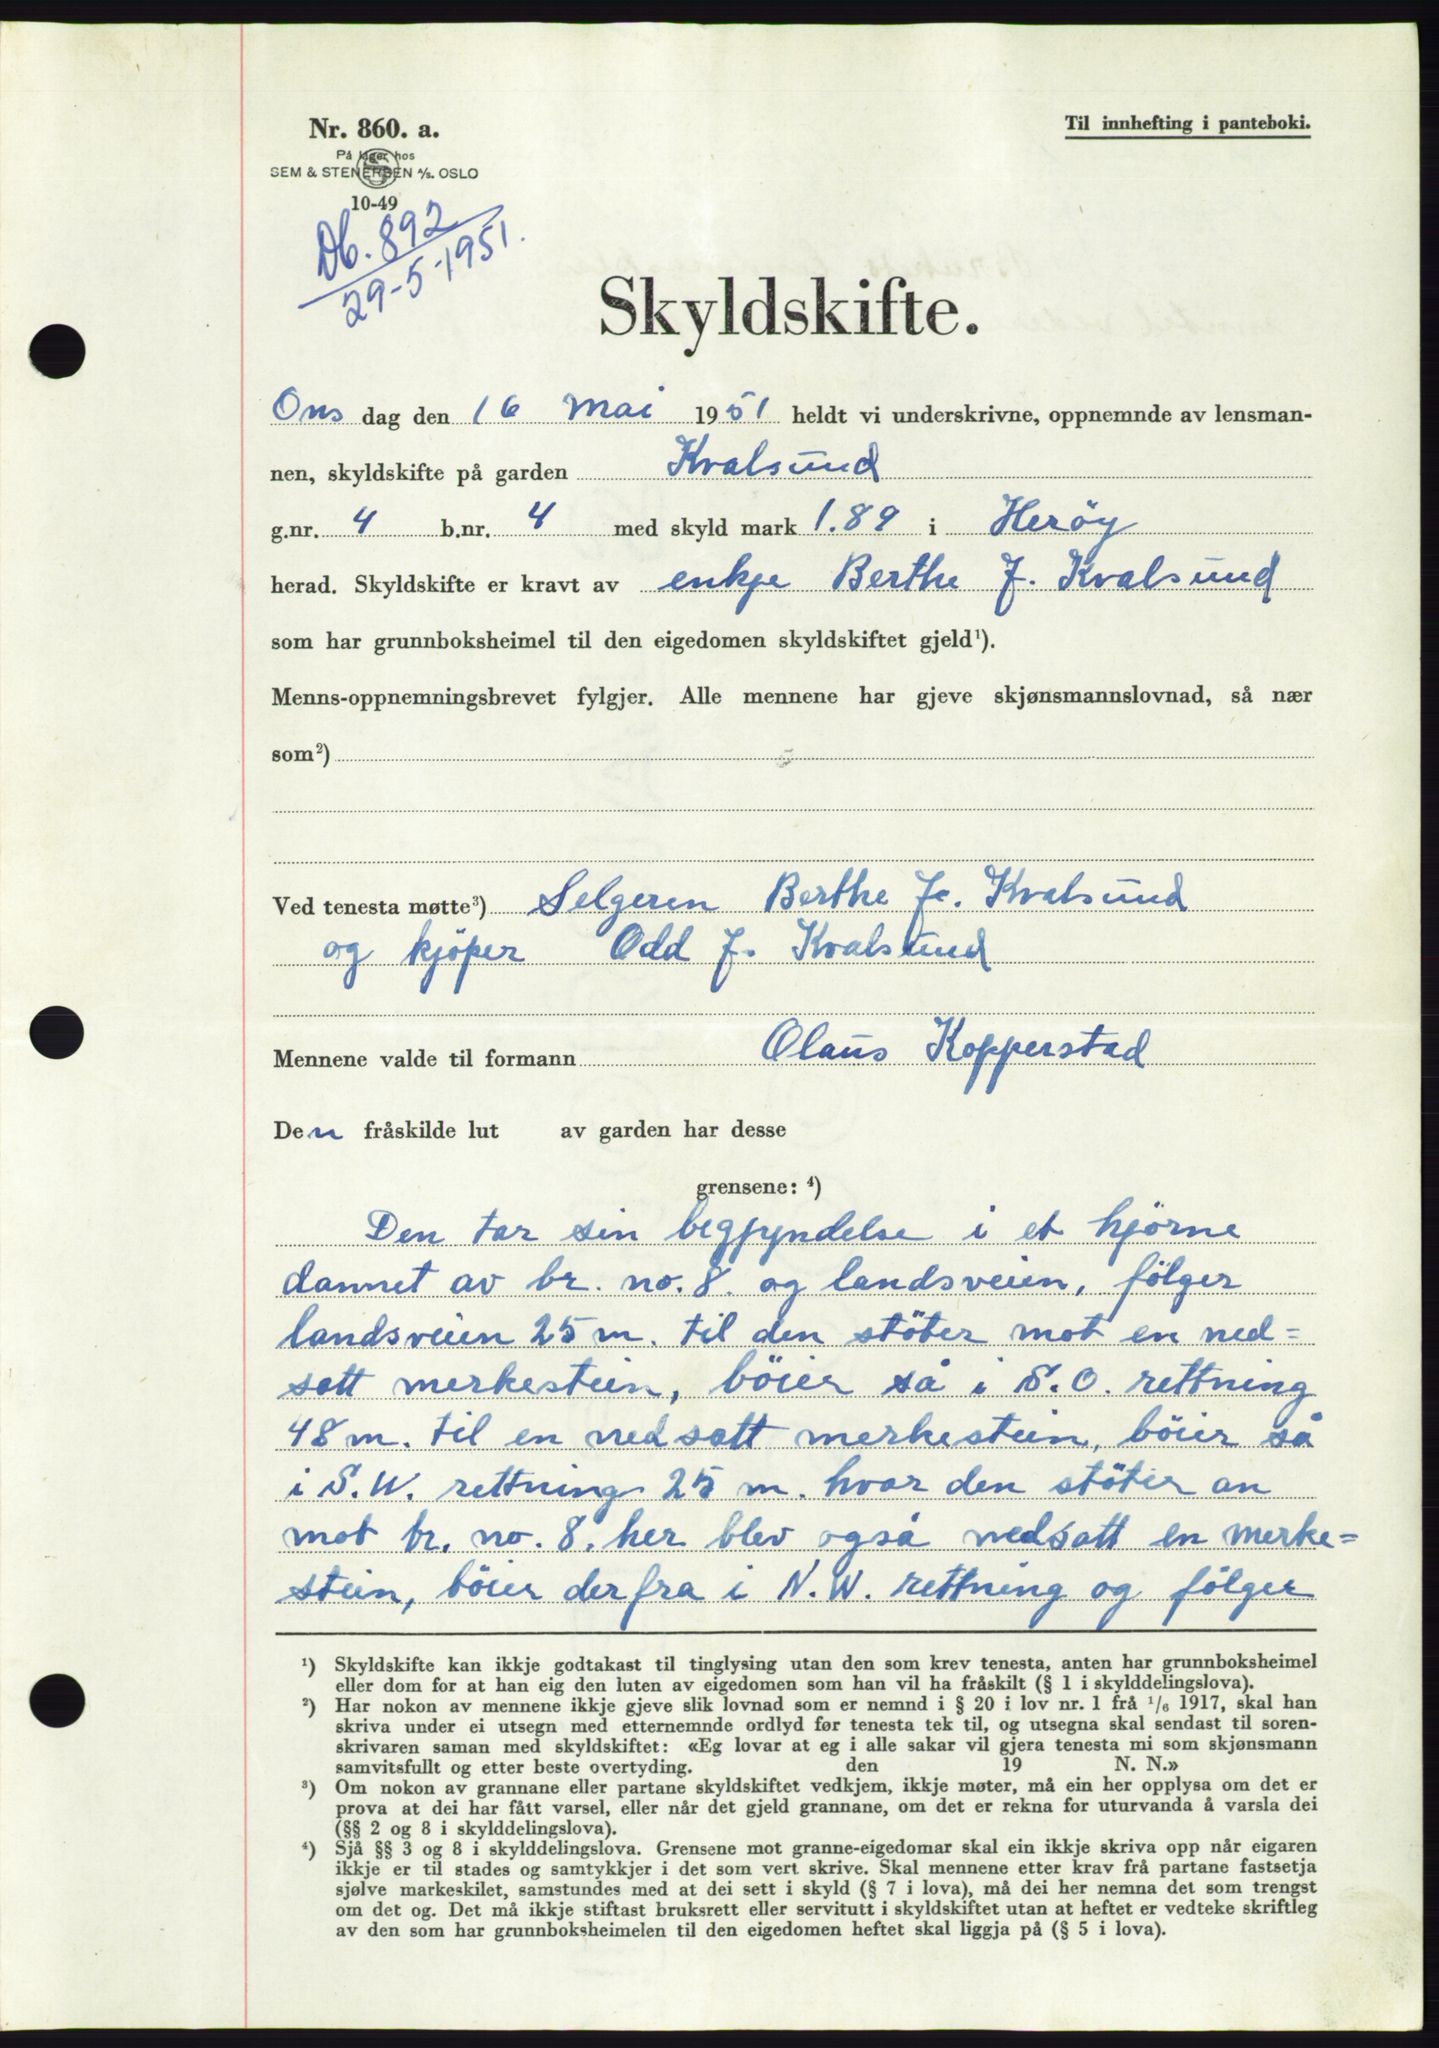 Nr. 860. a.
Til innhefting i panteboki.
På lager hos
SEM & STENERSEN A/S. OSLO
10-49
Db. 892
29-5-1951.
Skyldskifte.
Ons dag den 16 mai 1951 heldt vi underskrivne, oppnemnde av lensman-
nen, skyldskifte på garden Kvalsund
g.nr. 4 b.nr. 4 med skyld mark 1.89 i Herøy
herad. Skyldskifte er kravt av enkje Berthe J. Kvalsund
som har grunnboksheimel til den eigedomen skyldskiftet gjeld¹).
Menns-oppnemningsbrevet fylgjer. Alle mennene har gjeve skjønsmannslovnad, så nær
som²)
Ved tenesta møtte³) Selgeren Berthe J. Kvalsund
og kjöper Odd J. Kvalsund
Mennene valde til formann Olaus Kopperstad
Den fråskilde lut av garden har desse
grensene: ⁴)
Den tar sin begpyndelse i et hjörne
dannet av br. no. 8. og landsveien, fölger
landsveien 25 m. til den stöter mot en ned=
satt merkestein, böier så i S.O. rettning
48 m. til en nedsatt merkestein, böier så
i S.W. rettning 25 m. hvor den stöter an
mot br. no. 8. her blev også nedsatt en merke=
stein, böier derfra i N.W. rettning og fölger
¹) Skyldskifte kan ikkje godtakast til tinglysing utan den som krev tenesta, anten har grunnboksheimel
eller dom for at han eig den luten av eigedomen som han vil ha fråskilt (§ 1 i skylddelingslova).
²) Har nokon av mennene ikkje gjeve slik lovnad som er nemnd i § 20 i lov nr. 1 frå ¹/₆ 1917, skal han
skriva under ei utsegn med etternemnde ordlyd før tenesta tek til, og utsegna skal sendast til soren-
skrivaren saman med skyldskiftet: «Eg lovar at eg i alle sakar vil gjera tenesta mi som skjønsmann
samvitsfullt og etter beste overtyding. den 19 N. N.»
³) Om nokon av grannane eller partane skyldskiftet vedkjem, ikkje møter, må ein her opplysa om det er
prova at dei har fått varsel, eller når det gjeld grannane, om det er rekna for uturvanda å varsla dei
(§§ 2 og 8 i skylddelingslova).
⁴) Sjå §§ 3 og 8 i skylddelingslova. Grensene mot granne-eigedomar skal ein ikkje skriva opp når eigaren
ikkje er til stades og samtykkjer i det som vert skrive. Skal mennene etter krav frå partane fastsetja
sjølve markeskilet, samstundes med at dei sett i skyld (§ 7 i lova), må dei her nemna det som trengst
om det og. Det må ikkje stiftast bruksrett eller servitutt i skyldskiftet utan at heftet er vedteke skriftleg
av den som har grunnboksheimelen til den eigedomen heftet skal liggja på (§ 5 i lova).